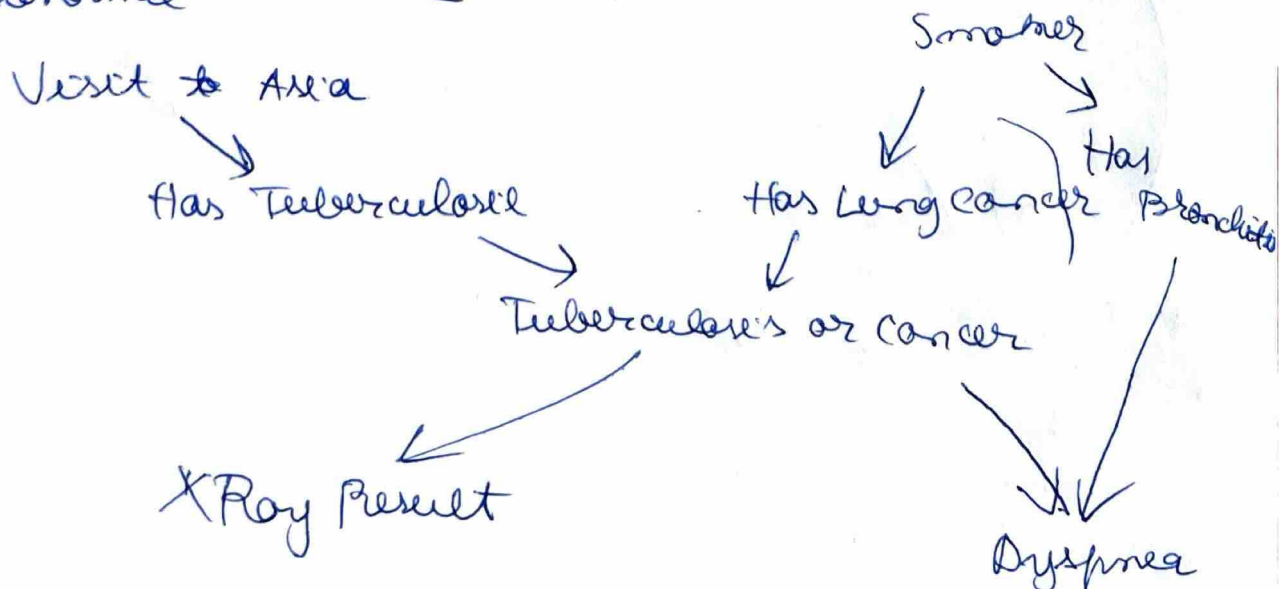 Smoker
Visit to Asia
Has
Has Tuberculosis
Has Lung Cancer
Bronchitis
Tuberculosis or Cancer
XRay Result
Dyspnea